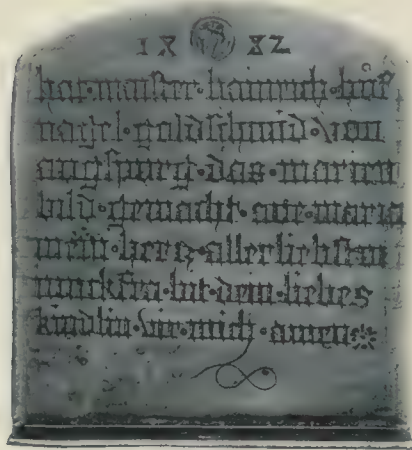 14 82
hat·maister·hainrich·hůf
nagel·goldschmid·von
augspurg·das·marien
bild·gemacht·aue·maria
mein·herz·allerliebsten
iunckfra·bit·dein·liebes
kindlin·vir·mich·amen